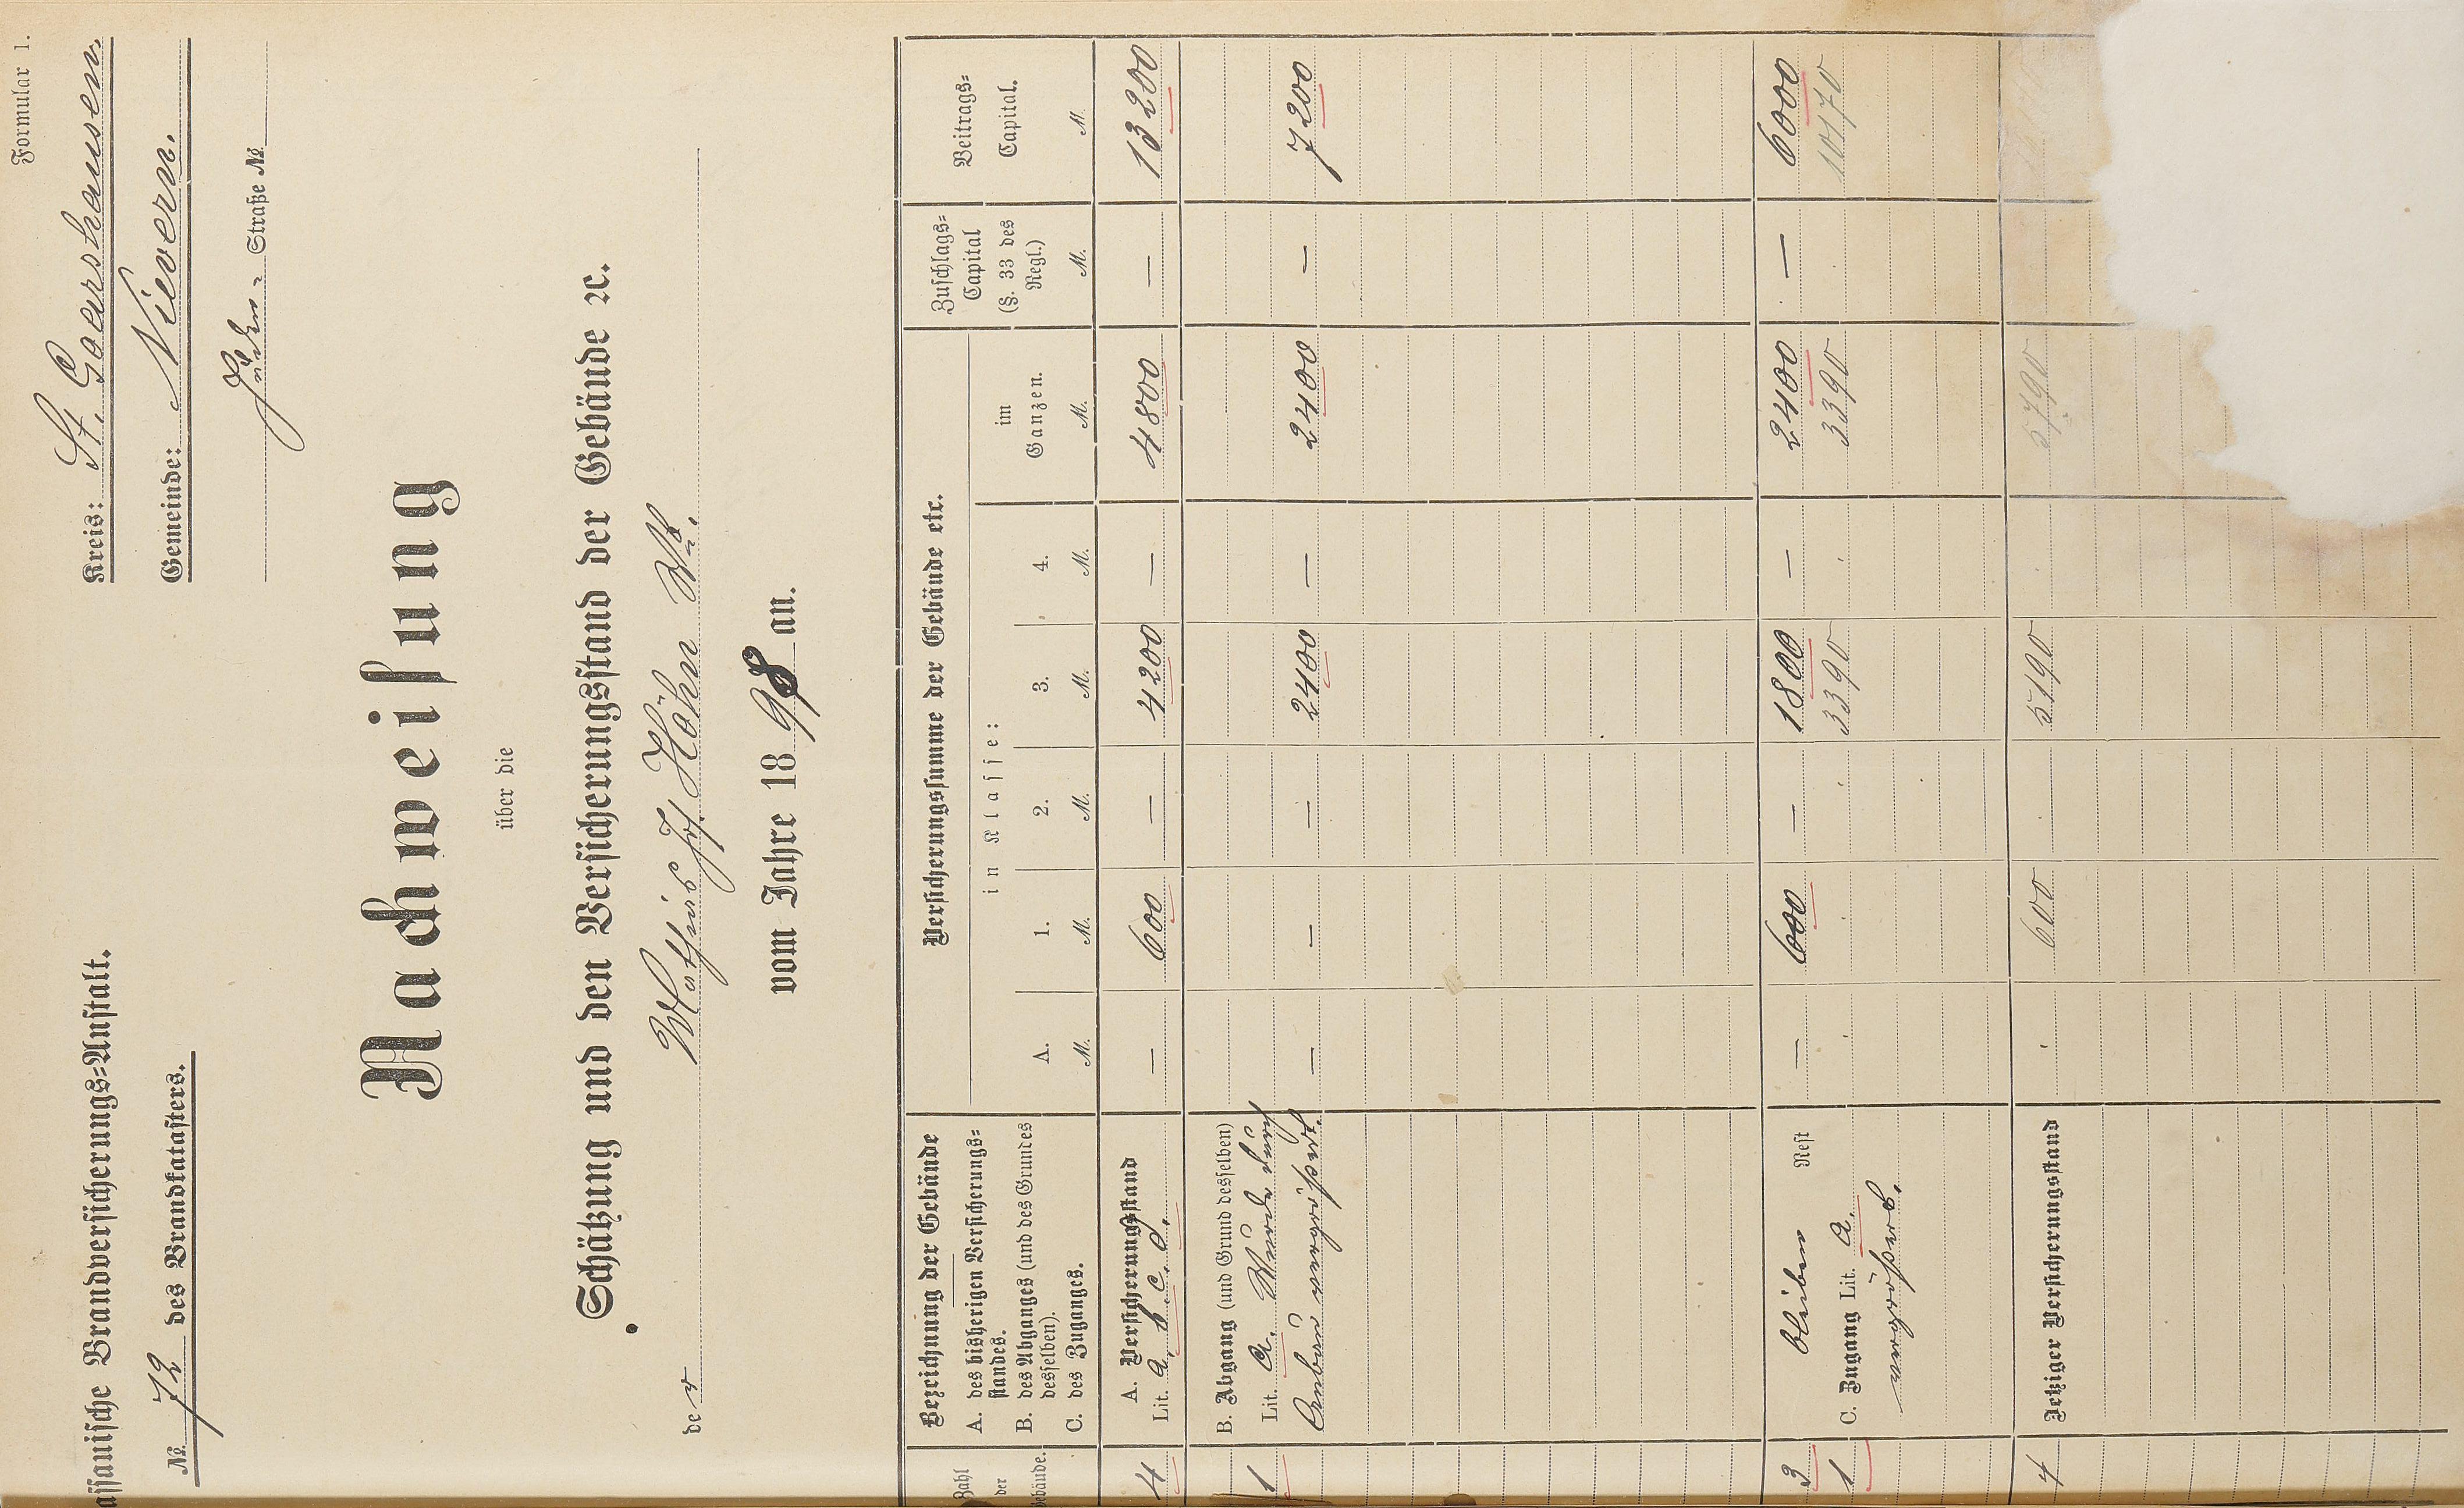 Formular 1.
assanische Brandversicherungs=Anstalt.
Kreis: St. Goarshausen.
№ 72 des Brandkatasters.
Gemeinde: Nievern.
Straße №
Nachweisung
über die
Schätzung und den Versicherungsstand der Gebäude ꝛc.
der Höhn
vom Jahre 1898 an.
Zahl der Gebäude.
Bezeichnung der Gebäude
A. des bisherigen Versicherungs=
standes.
B. des Abganges (und des Grundes
desselben).
C. des Zuganges.
Versicherungssumme der Gebäude etc.
in Klasse:
A. 1. 2. 3. 4. im Ganzen.
M. M. M. M. M. M.
Zuschlags=
Capital
(§. 33 des
Regl.)
M.
Beitrags=
Capital.
M.
A. Versicherungsstand
4 Lit. a. b. c. d. — 600 — 4200 — 4800 — 13200
B. Abgang (und Grund desselben)
1 Lit. a. Wurde durch
Anbau vergrößert. — — — 2400 — 2400 — 7200
3 bleiben Rest — 600 — 1800 — 2400 — 6000
1 C. Zugang Lit. a. 3390 3390 10170
vergrößert.
4 Jetziger Versicherungsstand 600 5190 5790